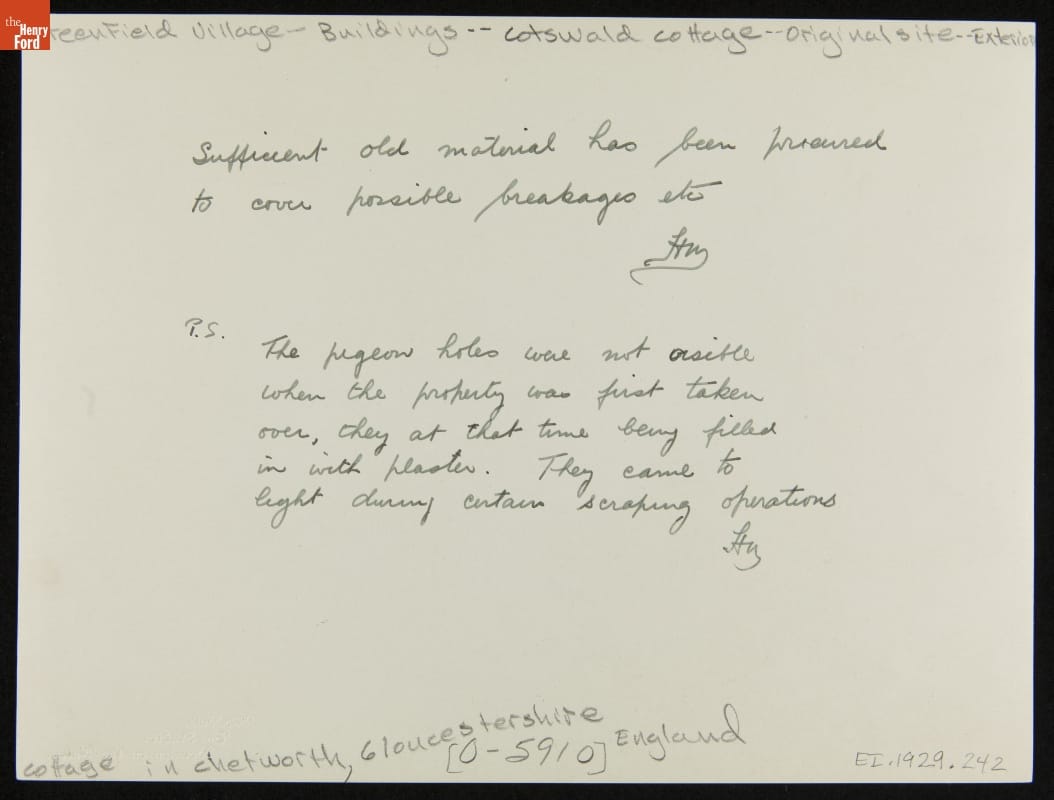 the
Henry
Ford
reenField Village - Buildings -- Cotswald Cottage -- Original site -- Exterior
Sufficient old material has been procured
to cover possible breakages etc
P.S.
The pigeon holes were not visible
when the property was first taken
over, they at that time being filled
in with plaster. They came to
light during certain scraping operations
cottage in chetworth, Gloucestershire England
[0-5910]
EI.1929.242